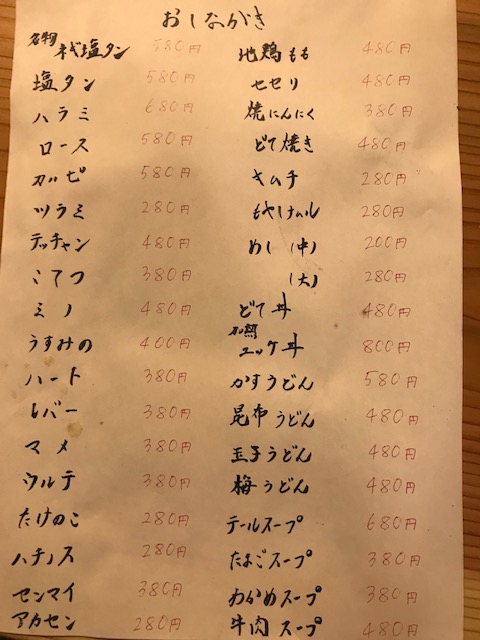 おしながき
名物 ネギ塩タン 580円
塩タン 580円
ハラミ 680円
ロース 580円
カッピ 580円
ツラミ 280円
テッチャン 480円
こてつ 380円
ミノ 480円
うすみの 400円
ハート 380円
レバー 380円
マメ 380円
ウルテ 380円
たけのこ 280円
ハチノス 280円
センマイ 380円
アカセン 280円
地鶏もも 480円
セセリ 480円
焼にんにく 380円
どて焼き 480円
キムチ 280円
もやしナムル 280円
めし (中) 200円
(大) 280円
どて丼 480円
加熱 ユッケ丼 800円
かすうどん 580円
昆布うどん 480円
玉子うどん 480円
梅うどん 480円
テールスープ 680円
たまごスープ 380円
わかめスープ 380円
牛肉スープ 480円